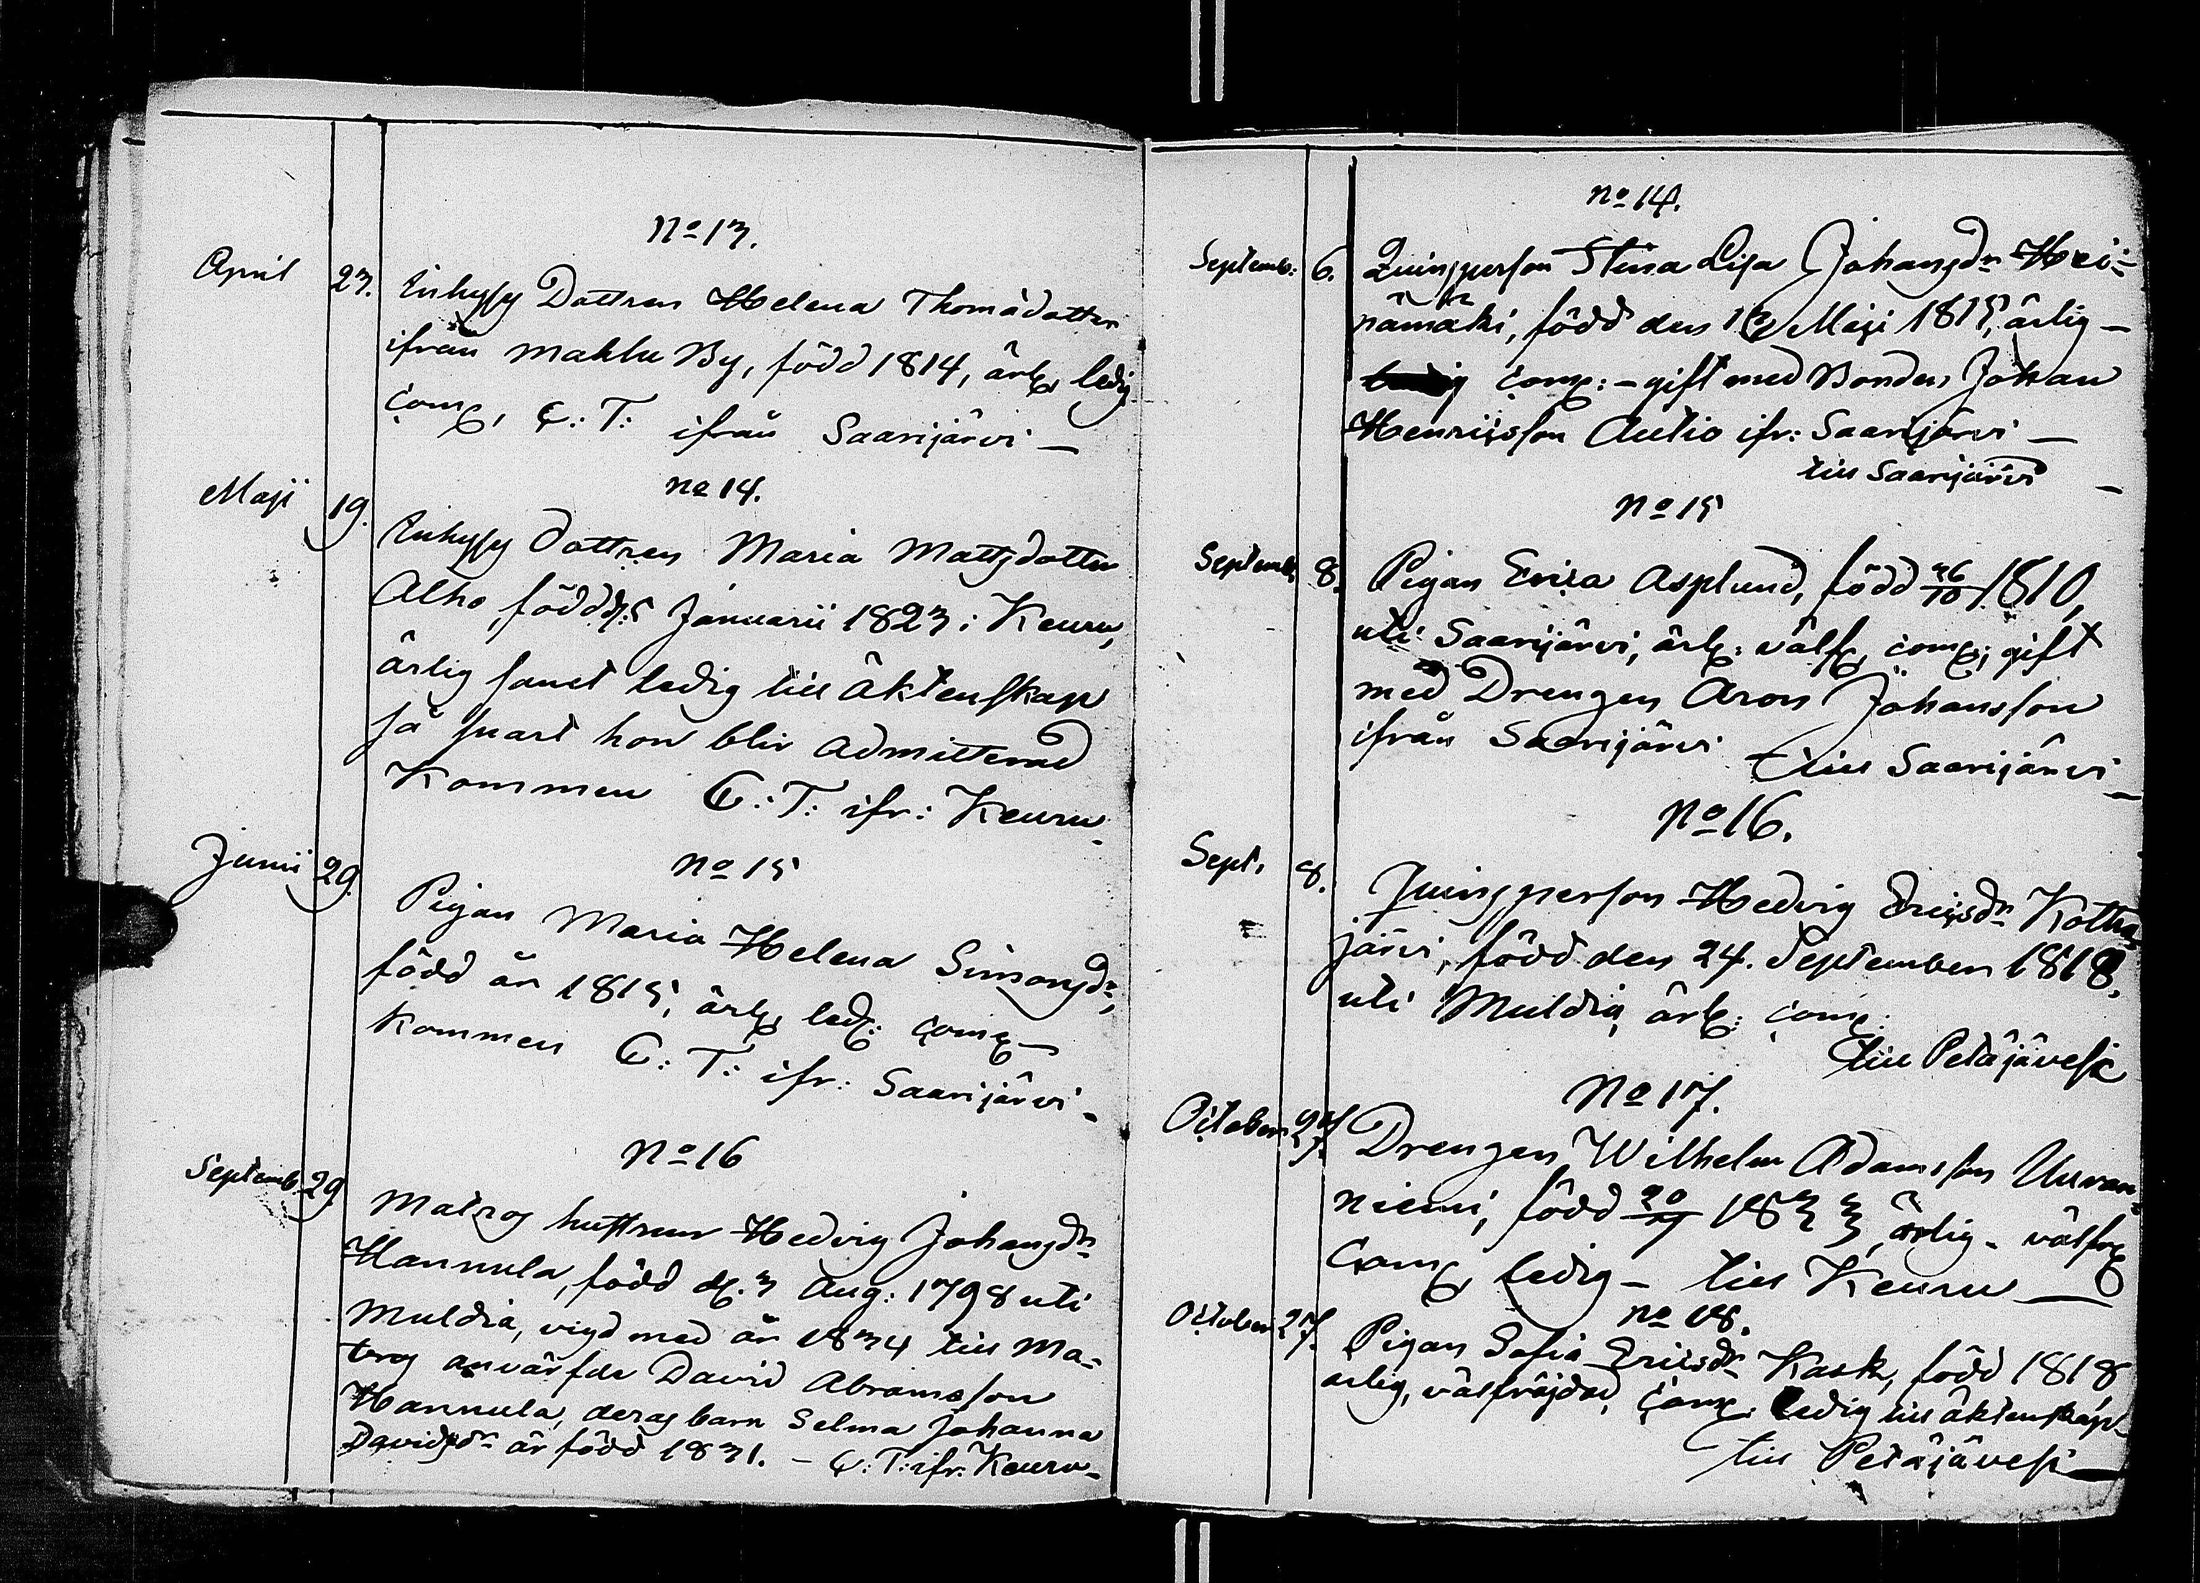 No 13.
April 23. Inhyss Dottren Helena Thomædotter
ifrån Mahlu By, född 1814, ärl., ledig
com, C: T: ifrån Saarijärvi —
No 14.
Maji 19. Inhyss dottren Maria Mattsdotter
Alho, född d. 5 Januarii 1823 i Keuru,
ärlig samt ledig till äktenskap
så snart hon blir admitterad
Kommen C: T: ifr: Keuru.
No 15
Junii 29. Pigan Maria Helena Simonsdr,
född år 1815, ärl., led: com —
kommen C: T: ifr: Saarijärvi -
No 16
Septemb. 29. Matros hustrun Hedvig Johansdr
Hannula, född d. 3 Aug: 1798 uti
Muldia, vigd med år 1834 till Ma-
tros David Abramsson
Hannula, deras barn Selma Johanna
Davidsdr är född 1831. — C: T: ifr: Keuru -
No 14.
Septemb: 6. Qvinsperson Stina Lisa Johansdr Hei-
nämäki, född den Maji 1815, ärlig —
com: - gift med Bonden Johan
Henricsson Autio ifr: Saarijärvi —
till Saarijärvi —
No 15
Septemb. 8. Pigan Erica Asplund, född 26/10 1810,
uti Saarijärvi, ärl: välf, com; gift
med Drengen Aron Johansson
ifrån Saarijärvi till Saarijärvi —
No 16.
Sept. 8. Qvinsperson Hedvig Ericsdr Kottra-
järvi, född den 24. September 1818,
uti Muldia, ärl: com:
till Petäjävesi
No 17.
October 27. Drengen Wilhelm Adamsson Uuran-
niemi, född 20/7 1833, ärlig - välfr
Com, ledig — till Keuru —
No 18.
October 27. Pigan Sofia Ericsdr Kask, född 1818
ärlig, välfräjdad, com: ledig till äktenskap -
till Petäjävesi —